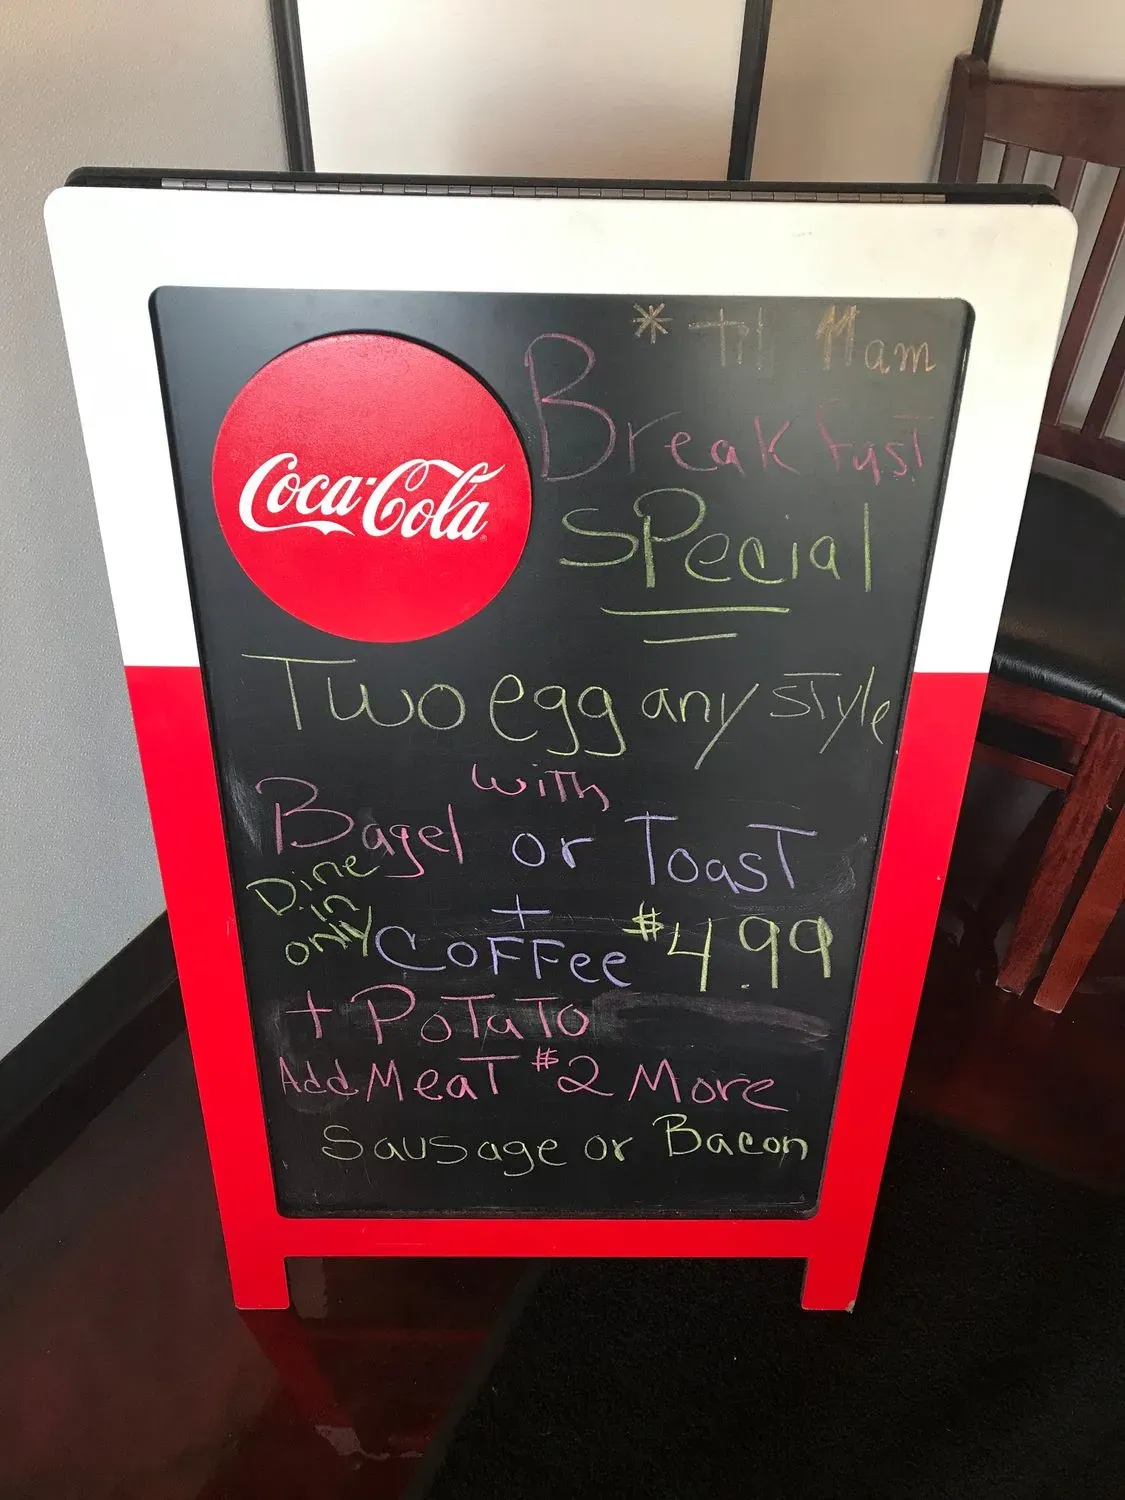 Coca-Cola
* Til 11am
Breakfast
Special
Two egg any style
with
Bagel or Toast
+
Dine
in
only
Coffee $4.99
+ Potato
Add Meat $2 More
Sausage or Bacon